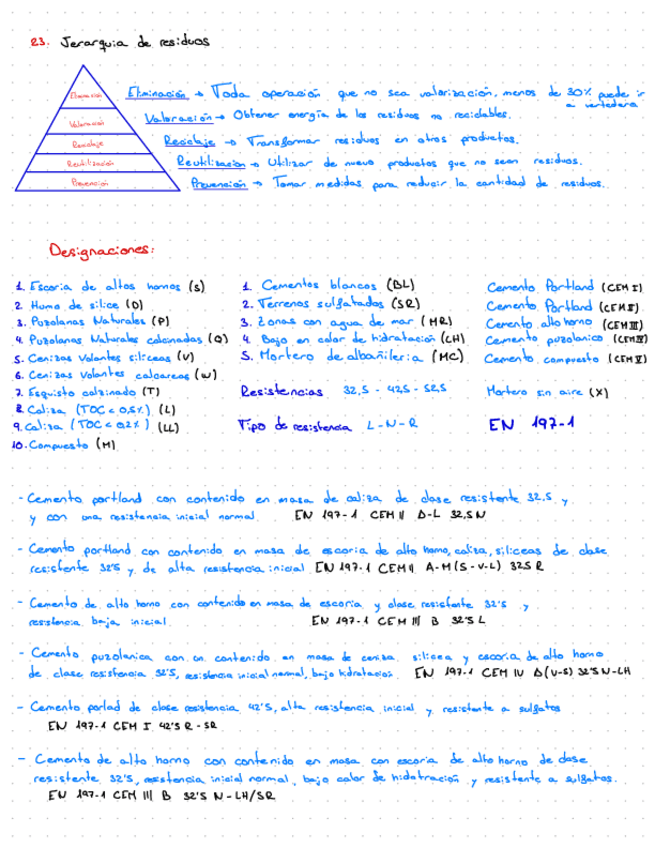 23. Jerarquia de residuos
Eliminación
Valoración
Reciclaje
Reutilización
Prevención
Eliminación → Toda operación que no sea valorización, menos de 30% puede ir
a vertedero
Valoración → Obtener energía de los residuos no reciclables.
Reciclaje → Transformar residuos en otros productos.
Reutilización → Utilizar de nuevo productos que no sean residuos.
Prevención → Tomar medidas para reducir la cantidad de residuos.
Designaciones:
1. Escoria de altos hornos (S)
2. Humo de silice (D)
3. Puzolanas Naturales (P)
4. Puzolanas Naturales calcinadas (Q)
5. Cenizas Volantes siliceas (V)
6. Cenizas Volantes calcareas (W)
7. Esquisto calzinado (T)
8. Caliza (TOC < 0,5%) (L)
9. Caliza (TOC < 0,2%) (LL)
10. Compuesto (M)
1. Cementos blancos (BL)
2. Terrenos sulfatados (SR)
3. Zonas con agua de mar (MR)
4. Bajo en calor de hidratación (LH)
5. Mortero de albañileria (MC)
Resistencias 32,5 - 42,5 - 52,5
Tipo de resistencia L-N-R
Cemento Portland (CEM I)
Cemento Portland (CEM II)
Cemento alto horno (CEM III)
Cemento puzolanico (CEM IV)
Cemento compuesto (CEM V)
Mortero sin aire (X)
EN 197-1
- Cemento portland con contenido en masa de caliza de clase resistente 32,5 y
y con una resistencia inicial normal. EN 197-1 CEM II B-L 32,5N
- Cemento portland con contenido en masa de escoria de alto horno, caliza, siliceas de clase
resistente 32'5 y de alta resistencia inicial EN 197-1 CEM II A-M (S-V-L) 32,5 R
- Cemento de alto horno con contenido en masa de escoria y clase resistente 32'5 y
resistencia baja inicial. EN 197-1 CEM III B 32'5 L
- Cemento puzolanica con un contenido en masa de ceniza silicea y escoria de alto horno
de clase resistencia 32'5, resistencia inicial normal, bajo hidratacion EN 197-1 CEM IV B (V-S) 32'5 N-LH
- Cemento porlad de clase resistencia 42'5, alta resistencia inicial y resistente a sulfatos
EN 197-1 CEM I 42'5 R - SR
- Cemento de alto horno con contenido en masa con escoria de alto horno de clase
resistente 32'5, resistencia inicial normal, bajo calor de hidatración y resistente a sulfatos.
EN 197-1 CEM III B 32'5 N - LH/SR